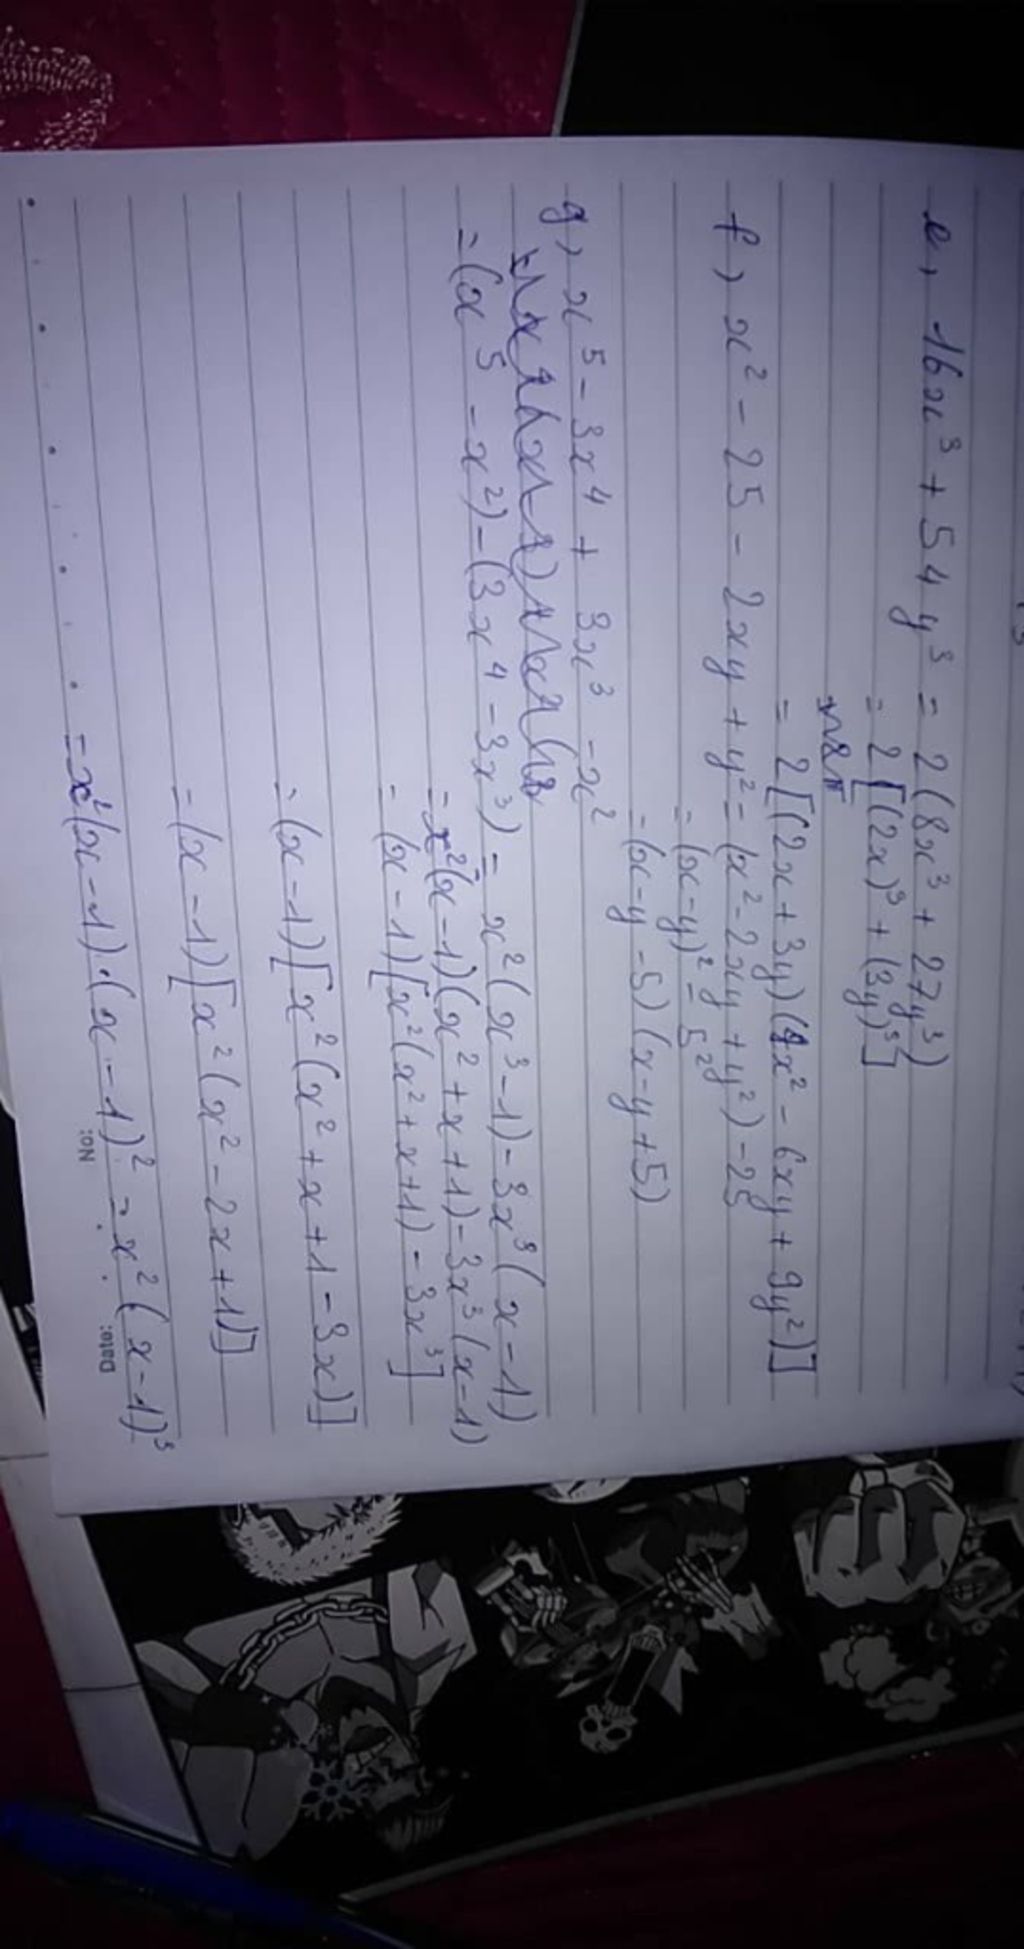 e, 16x³ + 54y³ = 2(8x³ + 27y³)
= 2[(2x)³ + (3y)³]
= 2[(2x + 3y)(4x² - 6xy + 9y²)]
f, x² - 25 - 2xy + y² = (x² - 2xy + y²) - 25
= (x - y)² - 5²
= (x - y - 5)(x - y + 5)
g, x⁵ - 3x⁴ + 3x³ - x²
= (x⁵ - x²) - (3x⁴ - 3x³) = x²(x³ - 1) - 3x³(x - 1)
= x²(x - 1)(x² + x + 1) - 3x³(x - 1)
= (x - 1)[x²(x² + x + 1) - 3x³]
= (x - 1)[x²(x² + x + 1 - 3x)]
= (x - 1)[x²(x² - 2x + 1)]
= x²(x - 1).(x - 1)² = x²(x - 1)³
No: Date: